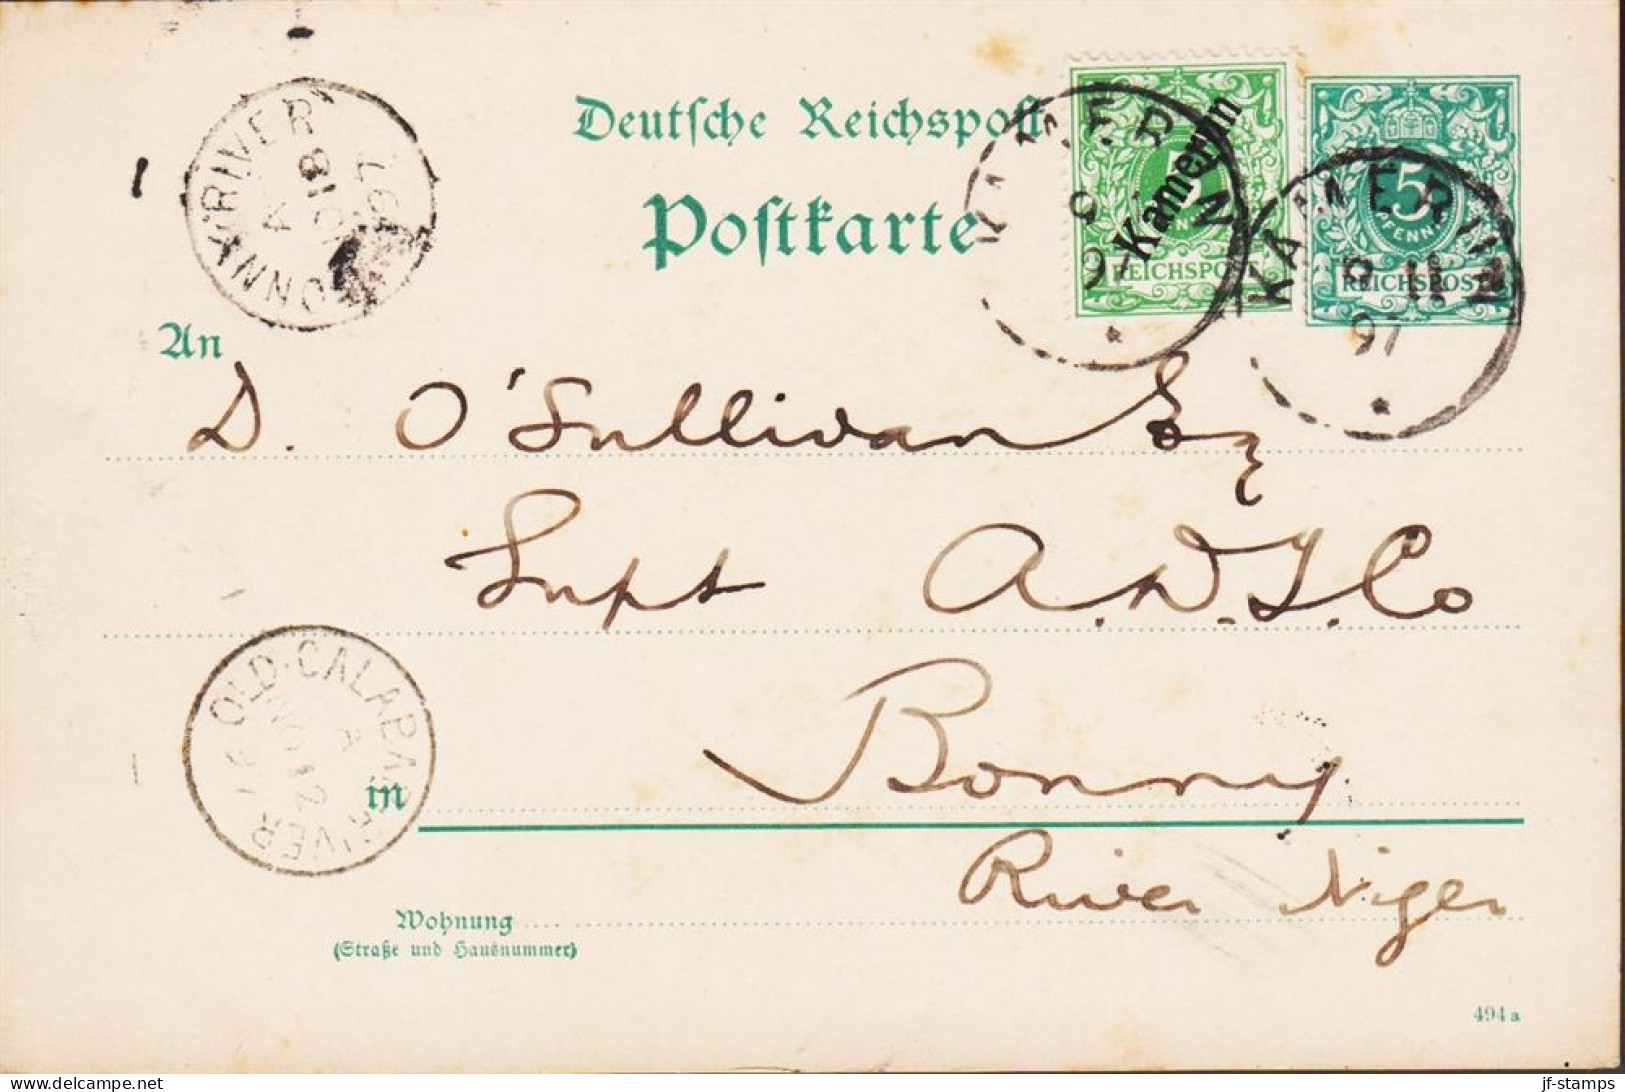 Deutsche Reichspost
Postkarte
BONNY·RIVER
A
NO 18
97
5
REICHSPOST
Kamerun
5
PFENNIG
REICHSPOST
KAMERUN
9
97
*
KAMERUN
9 11
97
*
An
D. O'Sullivan Esq
Supt A.D.T. Co
OLD·CALABAR RIVER
A
NO 12
97
in
Bonny
River Niger
Wohnung
(Straße und Hausnummer)
494 a
jf-stamps
www.delcampe.net